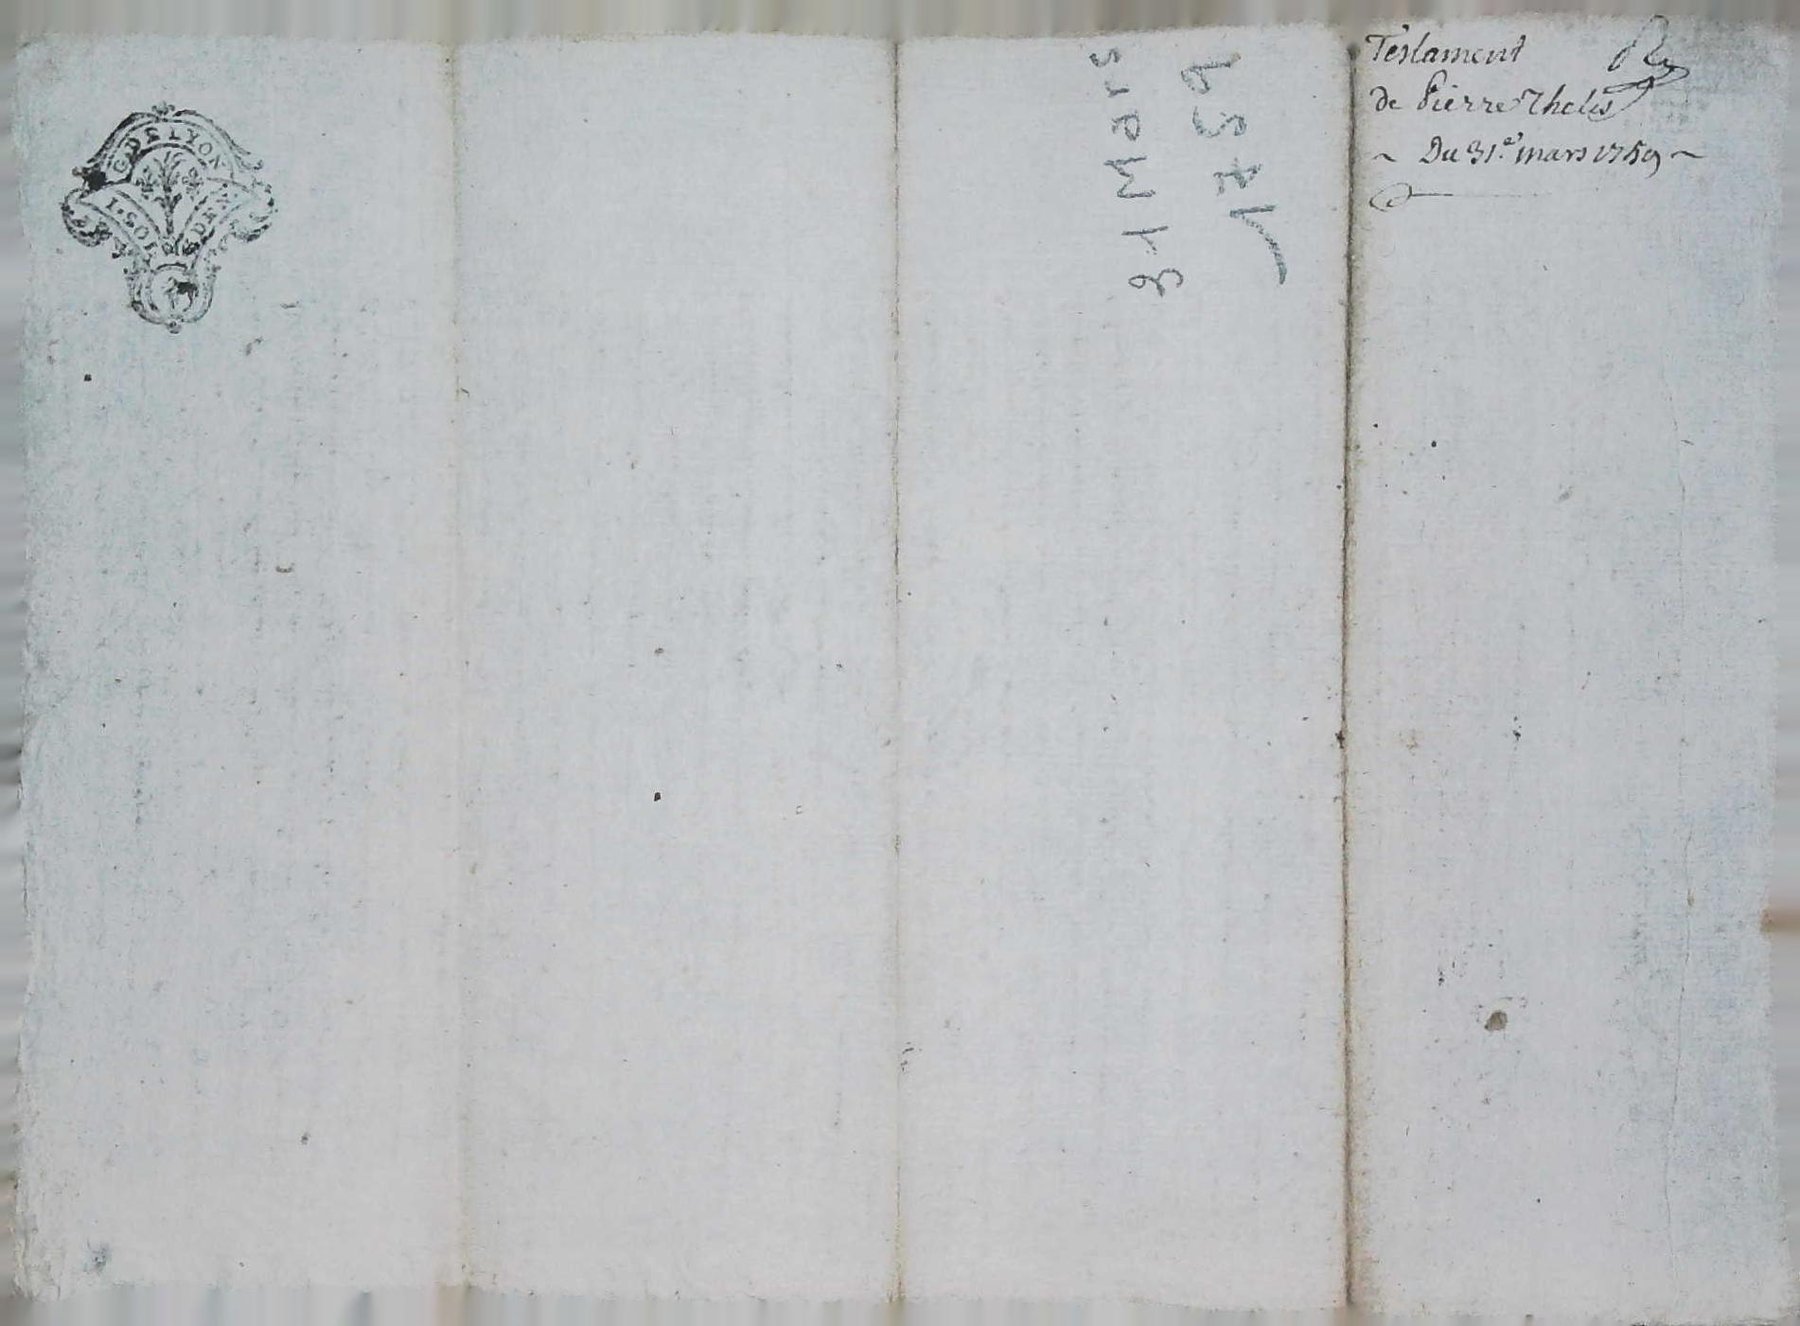 G. DE LYON
I. SOL
DEN.
31 Mars
1759
Testament
de Pierre Thelis
~ Du 31.e mars 1759 ~